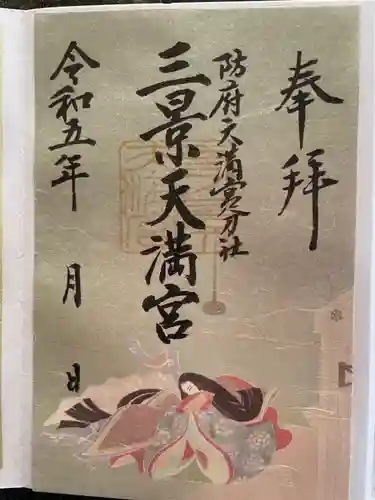 奉拝
防府天満宮分社
三景天満宮
令和五年 月 日